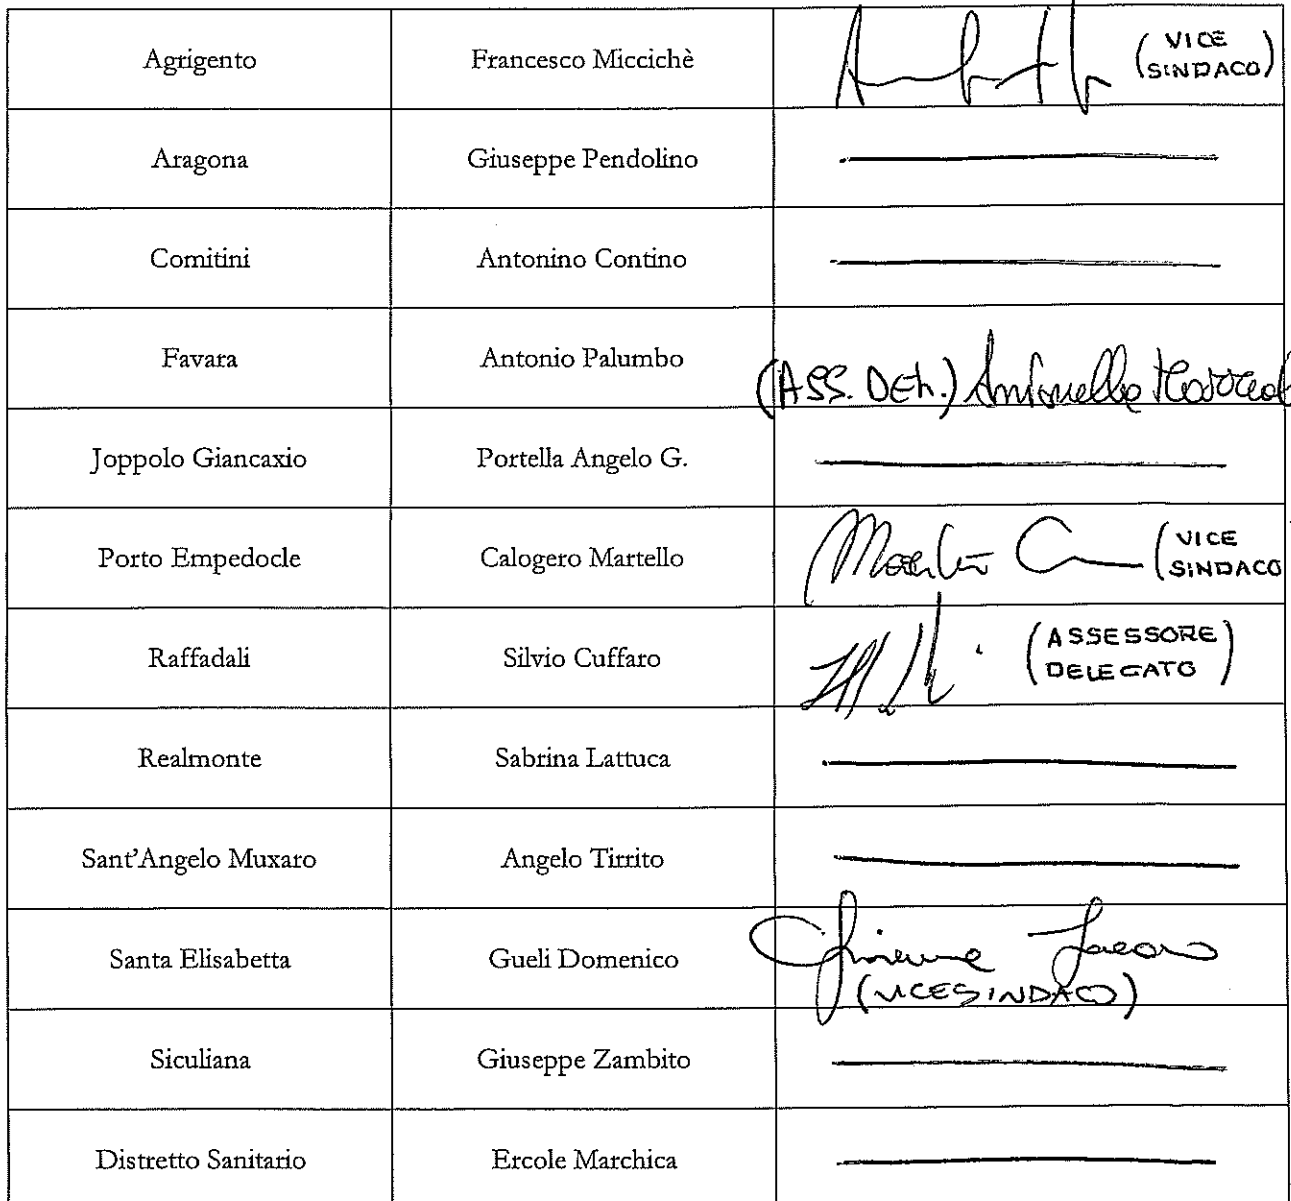 Agrigento Francesco Miccichè (VICE SINDACO)
Aragona Giuseppe Pendolino
Comitini Antonino Contino
Favara Antonio Palumbo (ASS. DEL.) Antonella
Joppolo Giancaxio Portella Angelo G.
Porto Empedocle Calogero Martello (VICE SINDACO
Raffadali Silvio Cuffaro (ASSESSORE DELEGATO)
Realmonte Sabrina Lattuca
Sant'Angelo Muxaro Angelo Tirrito
Santa Elisabetta Gueli Domenico
(VICESINDACO)
Siculiana Giuseppe Zambito
Distretto Sanitario Ercole Marchica